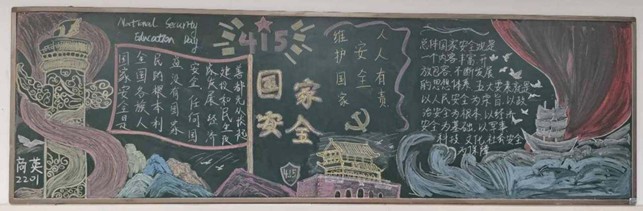 National Security
Education Day
国家安全是
全国各族人
民的根本利
益没有国家
安全 任何国
家发展 经济
建设和民生改
善都无从谈起
商英
2201
415
国家
安全
维护国家
安全
人人有责
总体国家安全观是
一个内容丰富开
放包容,不断发展
的思想体系 五大要素就是
以人民安全为宗旨,以政
治安全为根本 以经济
安全为基础,以军事
科技 文化 社会安全
为保障